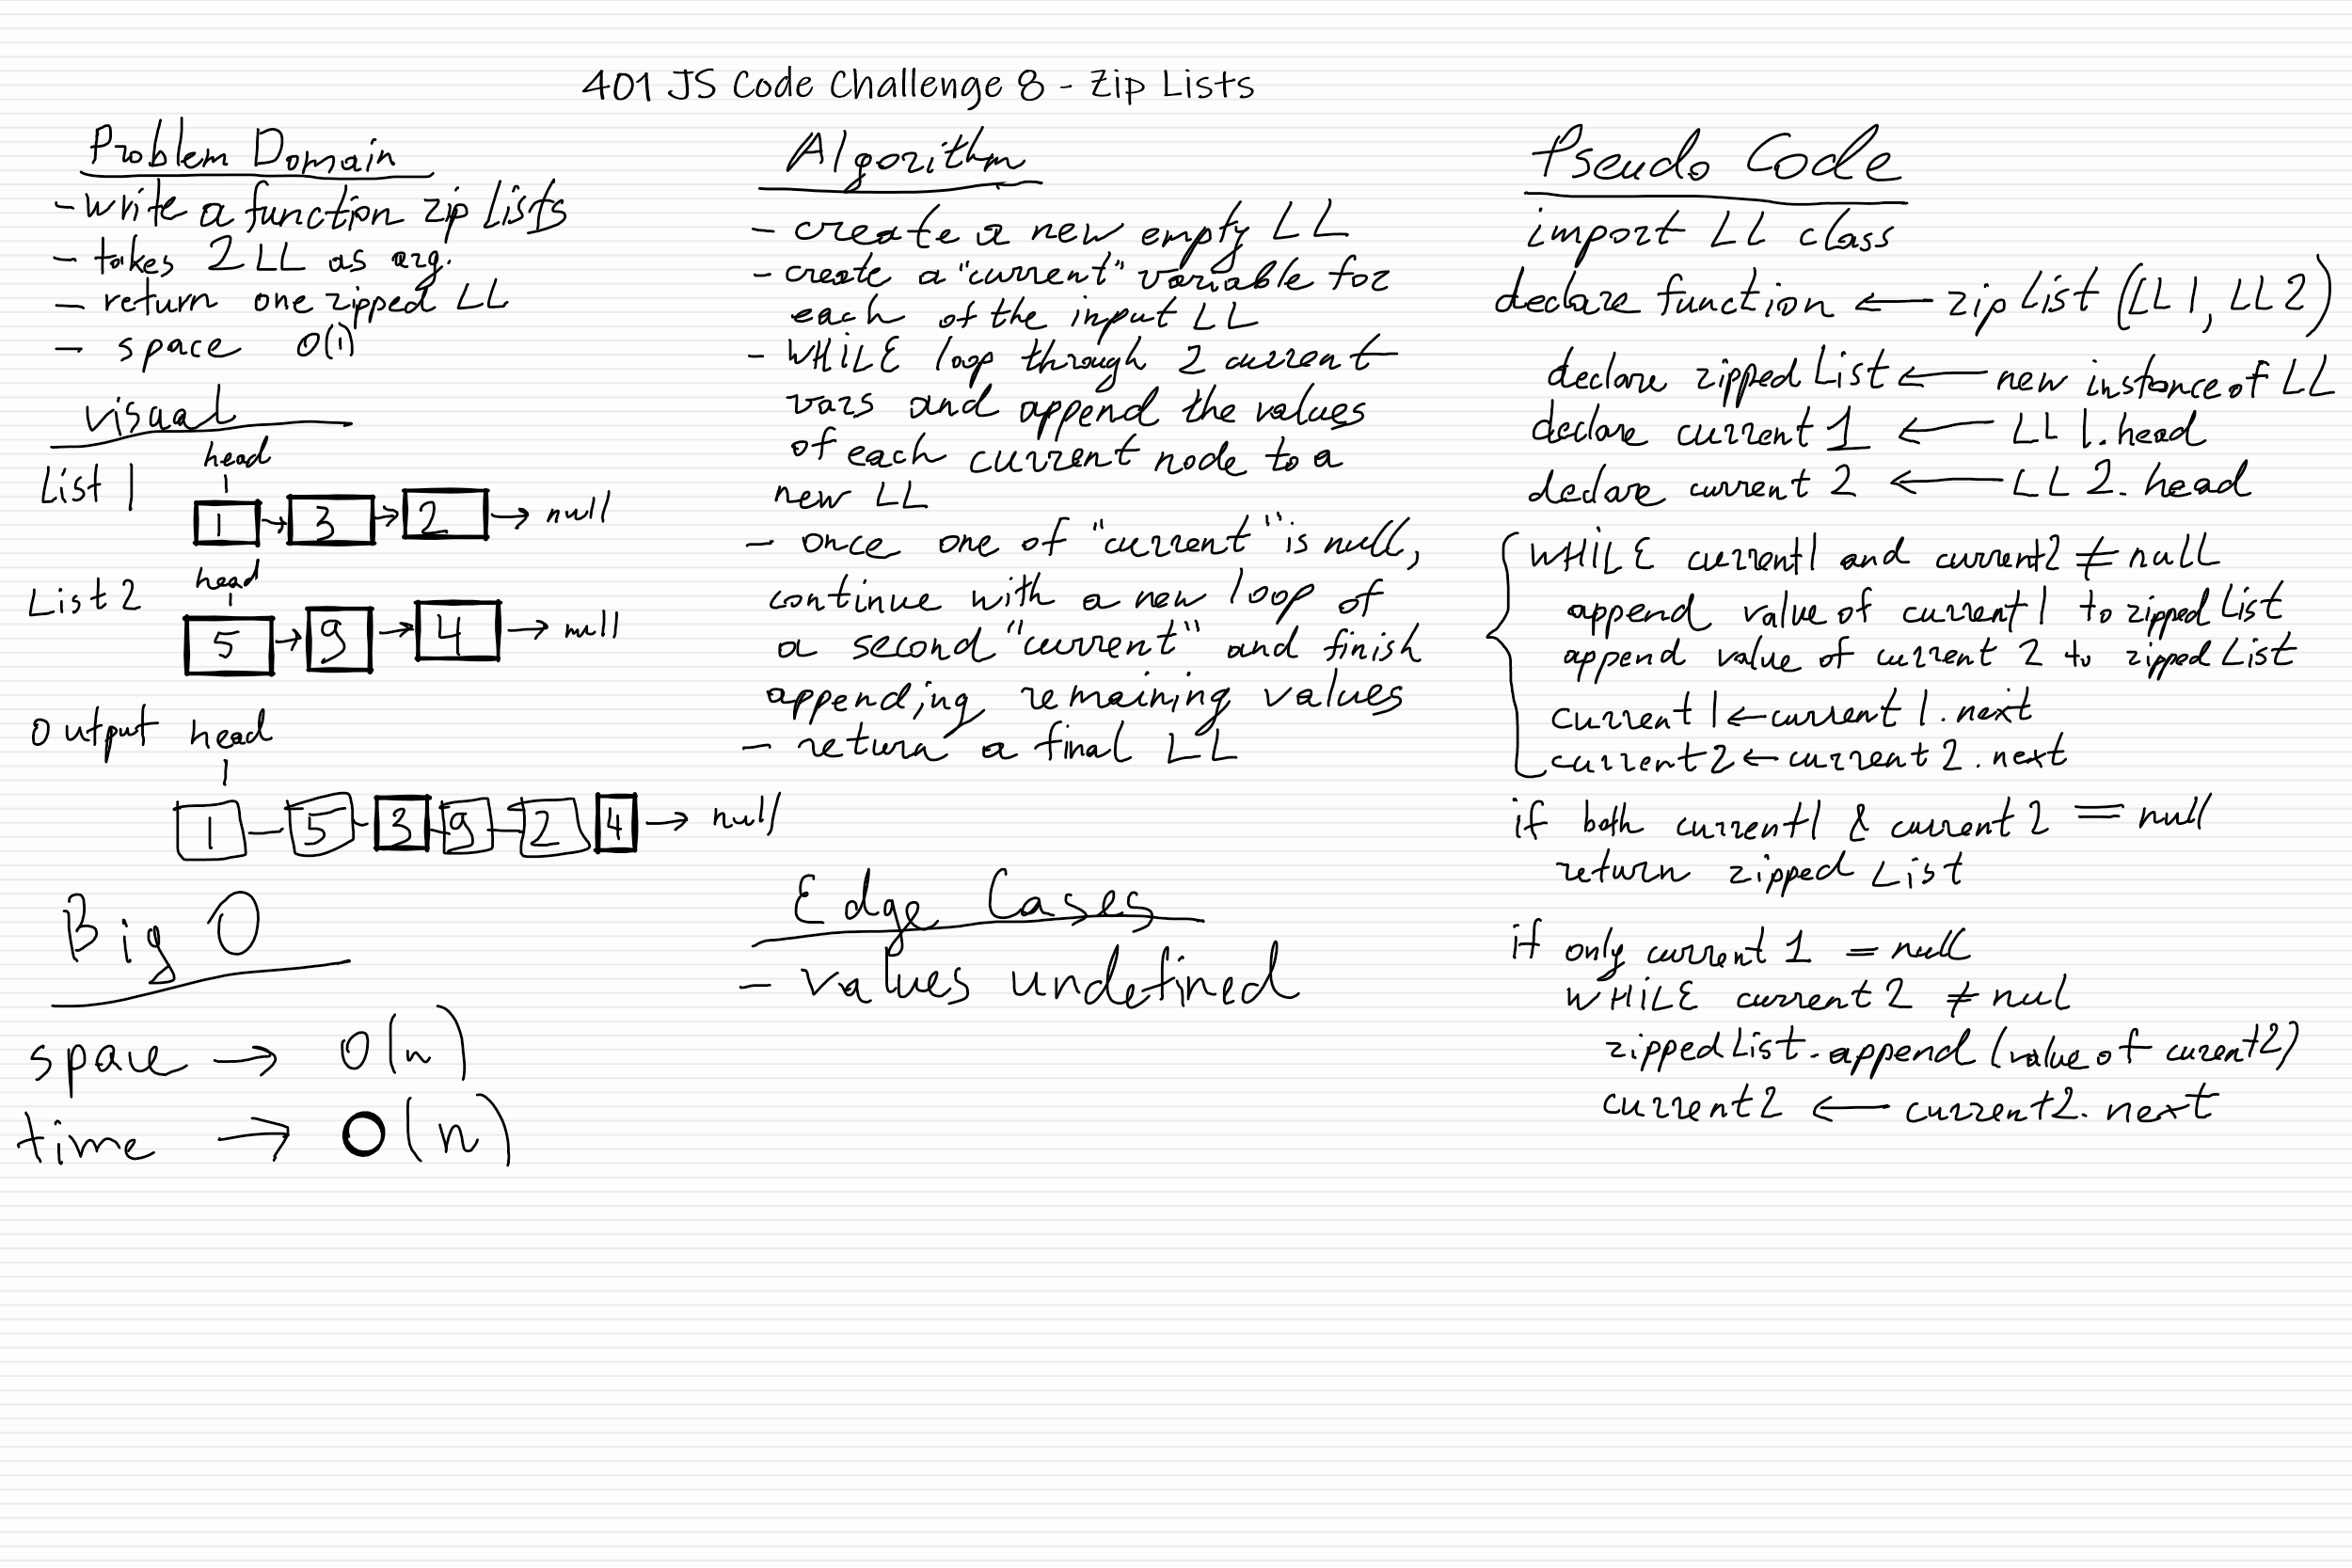 401 JS Code Challenge 8 - Zip Lists
Problem Domain
- write a function zip Lists
- takes 2 LL as arg.
- return one zipped LL
- space O(1)
visual
head
List 1
1 → 3 → 2 → null
head
List 2
5 → 9 → 4 → null
Output head
1 - 5 - 3 - 9 - 2 4 → null
Big O
space → O(n)
time → O(n)
Algorithm
- create a new empty LL
- create a "current" variable for
each of the input LL
- WHILE loop through 2 current
vars and append the values
of each current node to a
new LL
- once one of "current" is null,
continue with a new loop of
a second "current" and finish
appending remaining values
- return a final LL
Edge Cases
- values undefined
Pseudo Code
import LL class
declare function ← zip List (LL1, LL2)
declare zipped List ← new instance of LL
declare current 1 ← LL 1.head
declare current 2 ← LL 2.head
WHILE current1 and current2 ≠ null
append value of current1 to zipped List
append value of current 2 to zipped List
current1 ← current1.next
current2 ← current2.next
if both current1 & current2 == null
return zipped List
if only current 1 = null
WHILE current2 ≠ nul
zippedList.append (value of curent2)
current2 ← current2.next